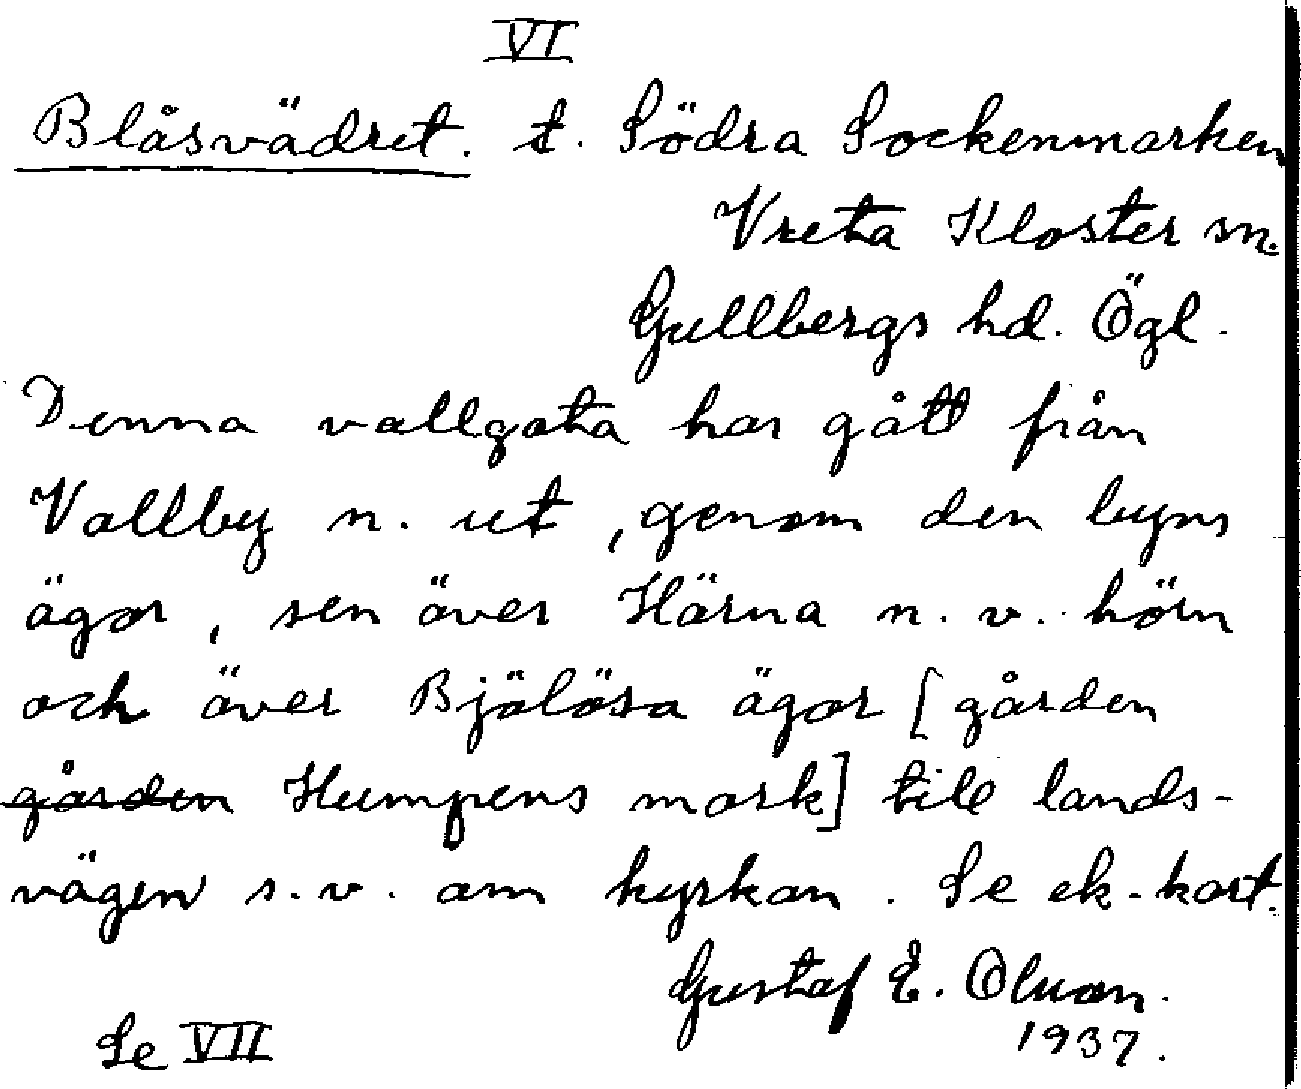 VI
Blåsvädret. t. Södra Sockenmarken
Vreta Kloster sn.
Gullbergs hd. Ögl.
Denna vallgata har gått från
Vallby n. ut, genom den byns
ägor, sen över Härna n. v. hörn
och över Bjälösa ägor [gården
gården Humpens mark] till lands-
vägen s.v. om kyrkan. Se ek-kart.
Gustaf E. Olson.
1937.
Se VII